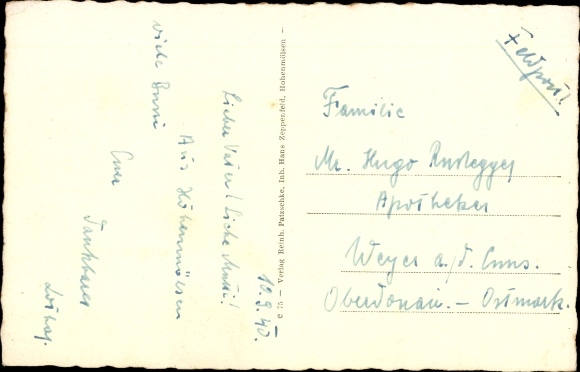 Feldpost!
10.9.40.
Lieber Vater! Liebe Mutti!
Aus Hohenmölsen
viele Bussi
Euer
dankbarer
c 75 – Verlag Reinh. Patzschke, Inh. Hans Zeppenfeld, Hohenmölsen –
Familie
Mr. Hugo
Apotheker
Weyer a./d. Enns.
Oberdonau. – Ostmark.